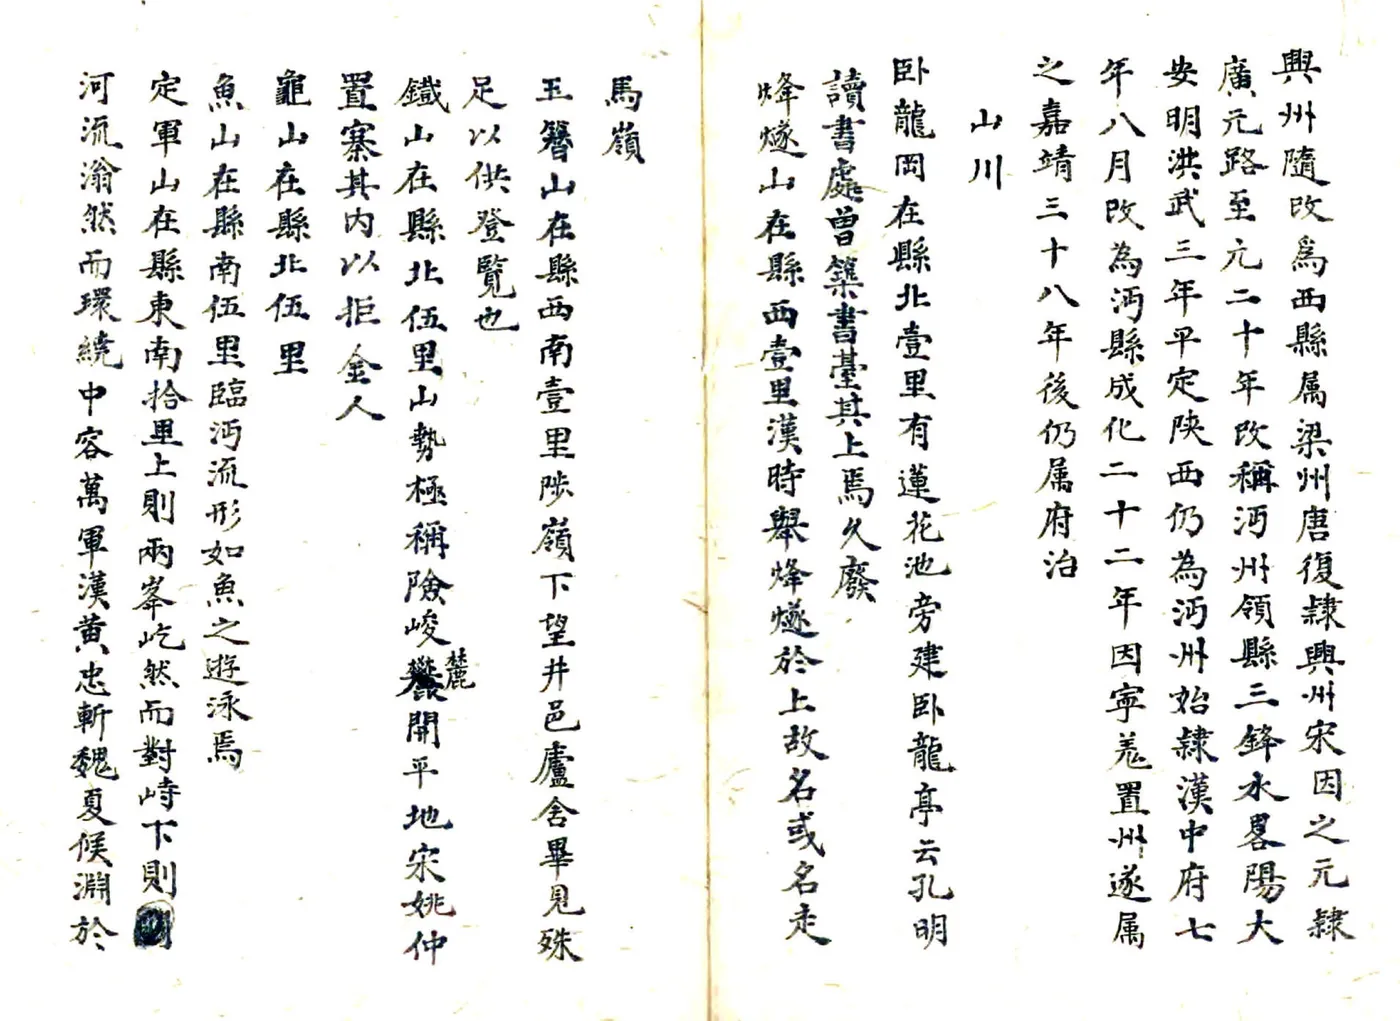 興州隨改爲西縣属梁州唐復隷興州宋因之元隷
廣元路至元二十年改稱沔州領縣三鋒水畧陽大
安明洪武三年平定陕西仍為沔州始隷漢中府七
年八月改為沔縣成化二十二年因寧羗置州遂属
之嘉靖三十八年後仍属府治
山川
卧龍岡在縣北壹里有蓮花池旁建卧龍亭云孔明
讀書處曽築書臺其上焉久廢
烽燧山在縣西壹里漢時舉烽燧於上故名或名走
馬嶺
玉簪山在縣西南壹里陟嶺下望井邑廬舍畢見殊
足以供登覧也
鐡山在縣北伍里山勢極稱險峻麓開平地宋姚仲
置寨其内以拒金人
龜山在縣北伍里
魚山在縣南伍里臨沔流形如魚之遊泳焉
定軍山在縣東南拾里上則兩峯屹然而對峙下則
河流滃然而環繞中容萬軍漢黄忠斬魏夏候淵於